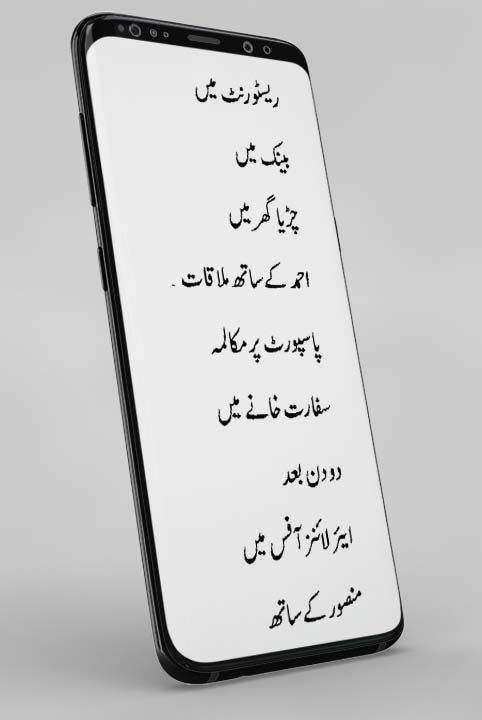 ریسٹورنٹ میں
بینک میں
چڑیا گھر میں
احمد کے ساتھ ملاقات ۔
پاسپورٹ پر مکالمہ
سفارت خانے میں
دو دن بعد
ایئر لائنز آفس میں
منصور کے ساتھ